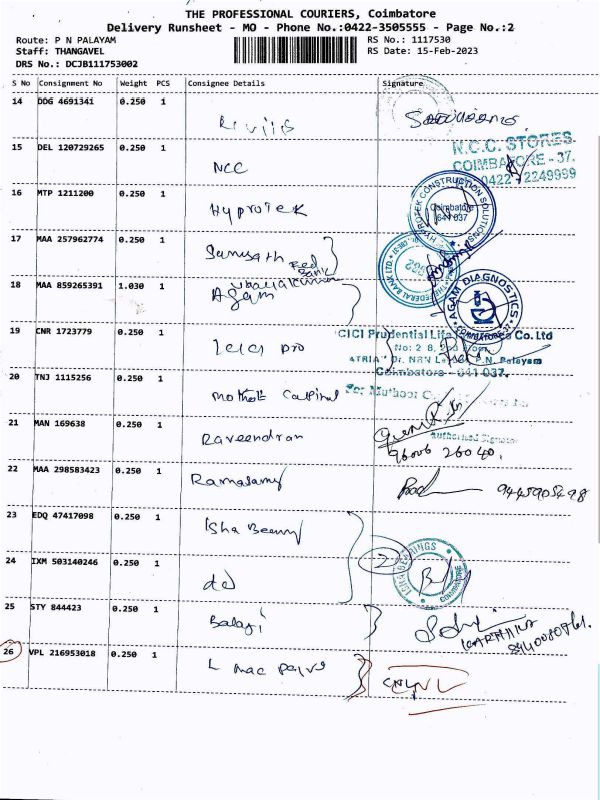 THE PROFESSIONAL COURIERS, Coimbatore
Delivery Runsheet - MO - Phone No.:0422-3505555 - Page No.:2
Route: P N PALAYAM
RS No.: 1117530
Staff: THANGAVEL
RS Date: 15-Feb-2023
DRS No.: DCJB111753002
S No Consignment No Weight PCS Consignee Details Signature
14 DDG 4691341 0.250 1
15 DEL 120729265 0.250 1 NCC
N.C.C. STORES
COIMBATORE - 37.
0422 - 2249999
16 MTP 1211200 0.250 1 Hyprotek
HYPROTEK CONSTRUCTION SOLUTIONS
Coimbatore
641 037
17 MAA 257962774 0.250 1
THE FEDERAL BANK LTD.
18 MAA 859265391 1.030 1 Agam
AGAM DIAGNOSTICS
COIMBATORE-37
19 CNR 1723779 0.250 1 Icici pro
ICICI Prudential Life Co. Ltd
P.N. Palayam
Coimbatore - 641 037.
20 TNJ 1115256 0.250 1
For Muthoot
21 MAN 169638 0.250 1 Raveendran
Authorised Signatory
96006 26040.
22 MAA 298583423 0.250 1 Ramasamy
9445905498
23 EDQ 47417098 0.250 1 Isha
24 IXM 503140246 0.250 1 do
2
COIMBATORE
25 STY 844423 0.250 1 Balaji
KARTHIKA
26 VPL 216953018 0.250 1